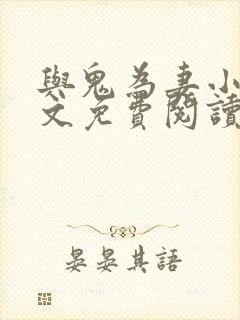 與鬼為妻小
文免費閱讀
晏晏其語